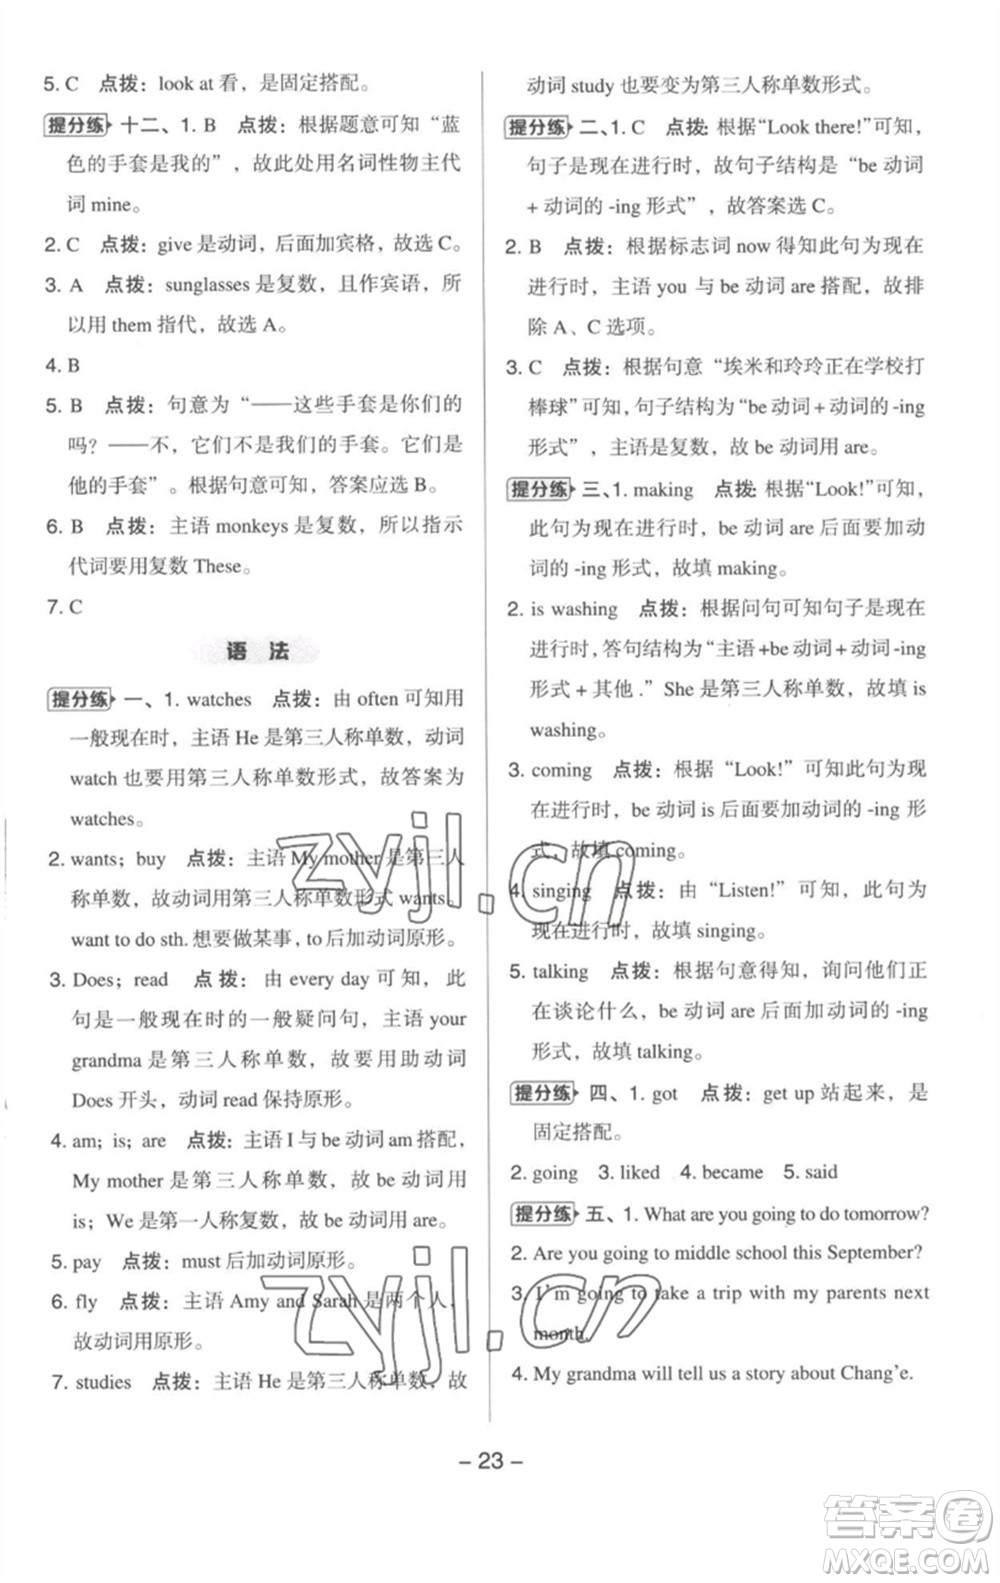 5. C 点拨：look at 看，是固定搭配。
提分练 十二、1. B 点拨：根据题意可知“蓝
色的手套是我的”，故此处用名词性物主代
词 mine。
2. C 点拨：give 是动词，后面加宾格，故选 C。
3. A 点拨：sunglasses 是复数，且作宾语，所
以用 them 指代，故选 A。
4. B
5. B 点拨：句意为“——这些手套是你们的
吗？——不，它们不是我们的手套。它们是
他的手套”。根据句意可知，答案应选 B。
6. B 点拨：主语 monkeys 是复数，所以指示
代词要用复数 These。
7. C
语 法
提分练 一、1. watches 点拨：由 often 可知用
一般现在时，主语 He 是第三人称单数，动词
watch 也要用第三人称单数形式，故答案为
watches。
2. wants；buy 点拨：主语 My mother 是第三人
称单数，故动词用第三人称单数形式 wants。
want to do sth. 想要做某事，to 后加动词原形。
3. Does；read 点拨：由 every day 可知，此
句是一般现在时的一般疑问句，主语 your
grandma 是第三人称单数，故要用助动词
Does 开头，动词 read 保持原形。
4. am；is；are 点拨：主语 I 与 be 动词 am 搭配，
My mother 是第三人称单数，故 be 动词用
is；We 是第一人称复数，故 be 动词用 are。
5. pay 点拨：must 后加动词原形。
6. fly 点拨：主语 Amy and Sarah 是两个人，
故动词用原形。
7. studies 点拨：主语 He 是第三人称单数，故
动词 study 也要变为第三人称单数形式。
提分练 二、1. C 点拨：根据“Look there!”可知，
句子是现在进行时，故句子结构是“be 动词
+ 动词的 -ing 形式”，故答案选 C。
2. B 点拨：根据标志词 now 得知此句为现在
进行时，主语 you 与 be 动词 are 搭配，故排
除 A、C 选项。
3. C 点拨：根据句意“埃米和玲玲正在学校打
棒球”可知，句子结构为“be 动词 + 动词的 -ing
形式”，主语是复数，故 be 动词用 are。
提分练 三、1. making 点拨：根据“Look!”可知，
此句为现在进行时，be 动词 are 后面要加动
词的 -ing 形式，故填 making。
2. is washing 点拨：根据问句可知句子是现在
进行时，答句结构为“主语 +be 动词 + 动词 -ing
形式 + 其他 .” She 是第三人称单数，故填 is
washing。
3. coming 点拨：根据“Look!”可知此句为现
在进行时，be 动词 is 后面要加动词的 -ing 形
式，故填 coming。
4. singing 点拨：由“Listen!”可知，此句为
现在进行时，故填 singing。
5. talking 点拨：根据句意得知，询问他们正
在谈论什么，be 动词 are 后面加动词的 -ing
形式，故填 talking。
提分练 四、1. got 点拨：get up 站起来，是
固定搭配。
2. going 3. liked 4. became 5. said
提分练 五、1. What are you going to do tomorrow?
2. Are you going to middle school this September?
3. I'm going to take a trip with my parents next
month.
4. My grandma will tell us a story about Chang'e.
– 23 –
zyjl.cn
zyjl.cn
答案圈
MXQE.COM